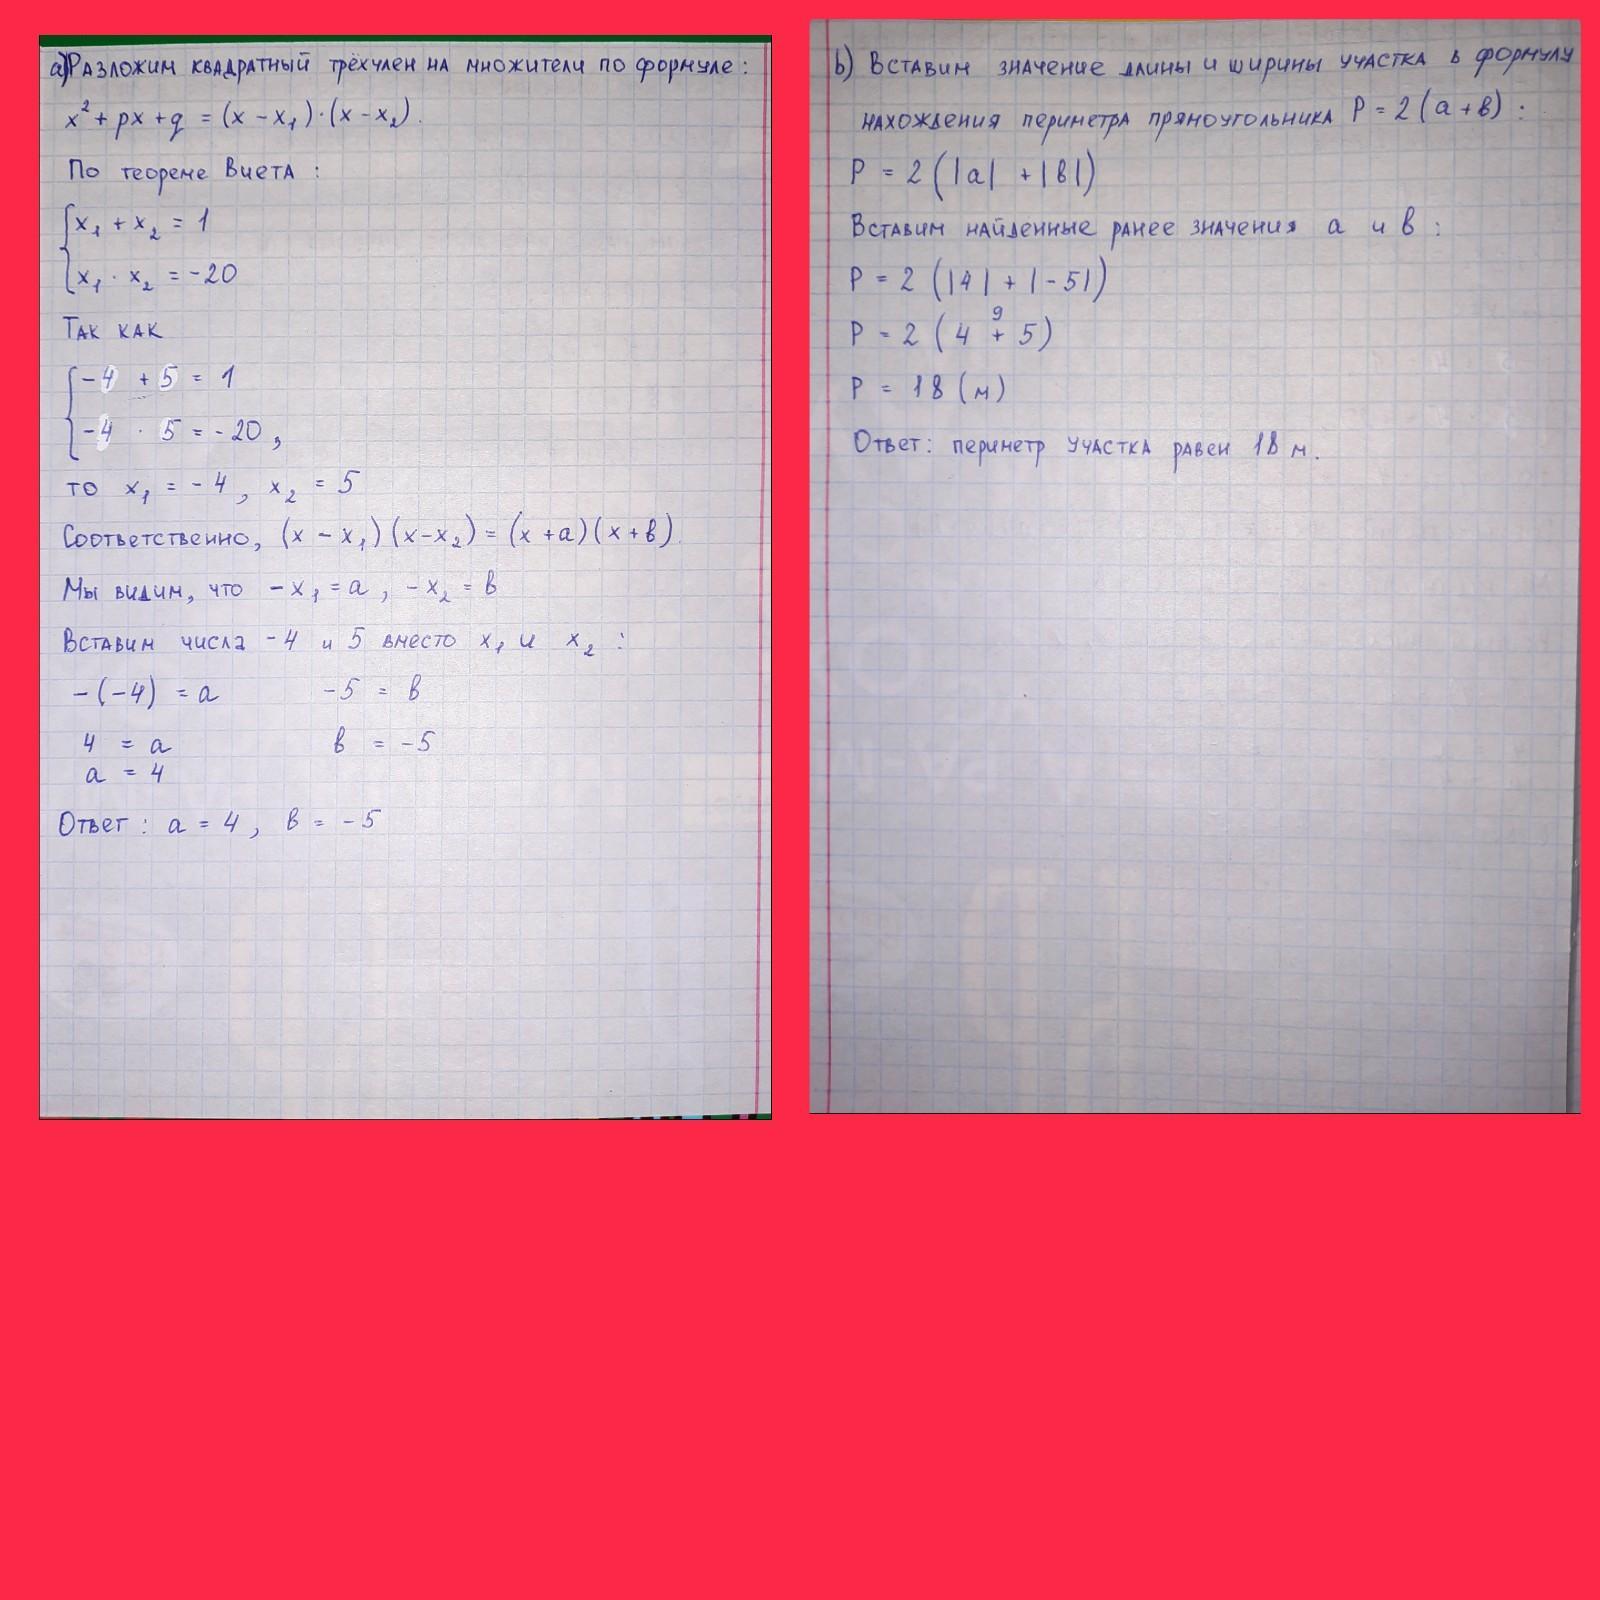 а) Разложим квадратный трёхчлен на множители по формуле:
x² + px + q = (x - x₁)·(x - x₂).
По теореме Виета:
x₁ + x₂ = 1
x₁ · x₂ = -20
Так как
-4 + 5 = 1
-4 · 5 = -20,
то x₁ = -4, x₂ = 5
Соответственно, (x - x₁)(x - x₂) = (x + a)(x + в).
Мы видим, что -x₁ = a, -x₂ = в
Вставим числа -4 и 5 вместо x₁ и x₂:
-(-4) = a -5 = в
4 = a в = -5
a = 4
Ответ: a = 4, в = -5
b) Вставим значение длины и ширины участка в формулу
нахождения периметра прямоугольника P = 2(a + в):
P = 2(|a| + |в|)
Вставим найденные ранее значения a и в:
P = 2(|4| + |-5|)
9
P = 2(4 + 5)
P = 18 (м)
Ответ: периметр участка равен 18 м.